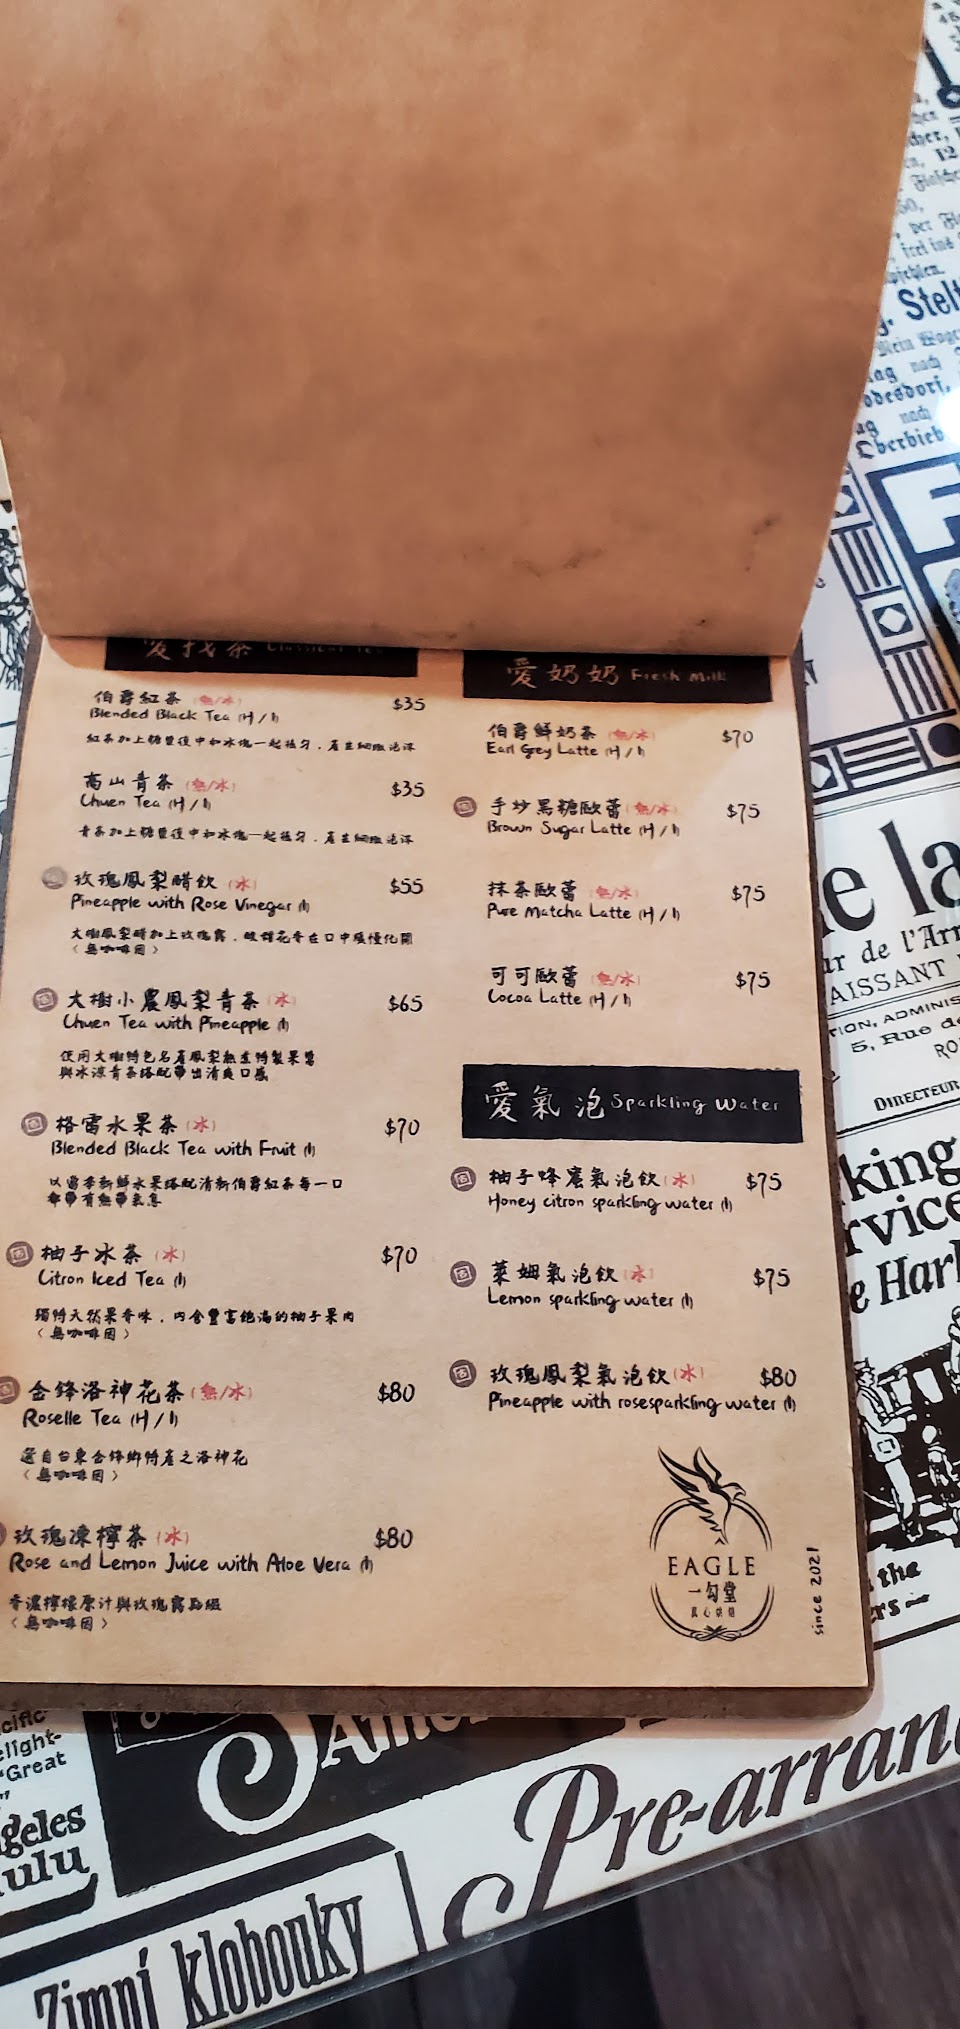 愛找茶 Classical Tea
伯爵紅茶 (熱/冰) $35
Blended Black Tea (H/I)
紅茶加上糖鹽後中和冰塊一起
高山青茶 (熱/冰) $35
Chuen Tea (H/I)
青茶加上糖鹽後中和冰塊一起
玫瑰鳳梨醋飲 (冰) $55
Pineapple with Rose Vinegar (I)
大樹鳳梨醋加上玫瑰露，酸甜花香在口中緩慢化開
（無咖啡因）
大樹小農鳳梨青茶 (冰) $65
Chuen Tea with Pineapple (I)
使用大樹特色名產鳳梨熬煮特製果醬
與冰涼青茶搭配帶出清爽口感
格雷水果茶 (冰) $70
Blended Black Tea with Fruit (I)
以當季新鮮水果搭配清新伯爵紅茶每一口
柚子冰茶 (冰) $70
Citron Iced Tea (I)
獨特天然果香味，內含豐富飽滿的柚子果肉
（無咖啡因）
金鋒洛神花茶 (熱/冰) $80
Roselle Tea (H/I)
選自台東金鋒鄉特產之洛神花
（無咖啡因）
玫瑰凍檸茶 (冰) $80
Rose and Lemon Juice with Aloe Vera (I)
香濃檸檬原汁與玫瑰露
（無咖啡因）
愛奶奶 Fresh Milk
伯爵鮮奶茶 (熱/冰) $70
Earl Grey Latte (H/I)
手炒黑糖歐蕾 (熱/冰) $75
Brown Sugar Latte (H/I)
抹茶歐蕾 (熱/冰) $75
Pure Matcha Latte (H/I)
可可歐蕾 (熱/冰) $75
Cocoa Latte (H/I)
愛氣泡 Sparkling Water
柚子蜂蜜氣泡飲 (冰) $75
Honey citron sparkling water (I)
萊姆氣泡飲 (冰) $75
Lemon sparkling water (I)
玫瑰鳳梨氣泡飲 (冰) $80
Pineapple with rosesparkling water (I)
EAGLE
一勾堂
真心烘焙
since 2021
g. Stelt
Oberbieb
ne la
ur de l'Arr
AISSANT
TION, ADMINIS
5, Rue de
DIRECTEUR
king
rvice
e Harl
the
ers
cific
elight-
"Great
geles
lulu
Pre-arran
Zimní klobouky